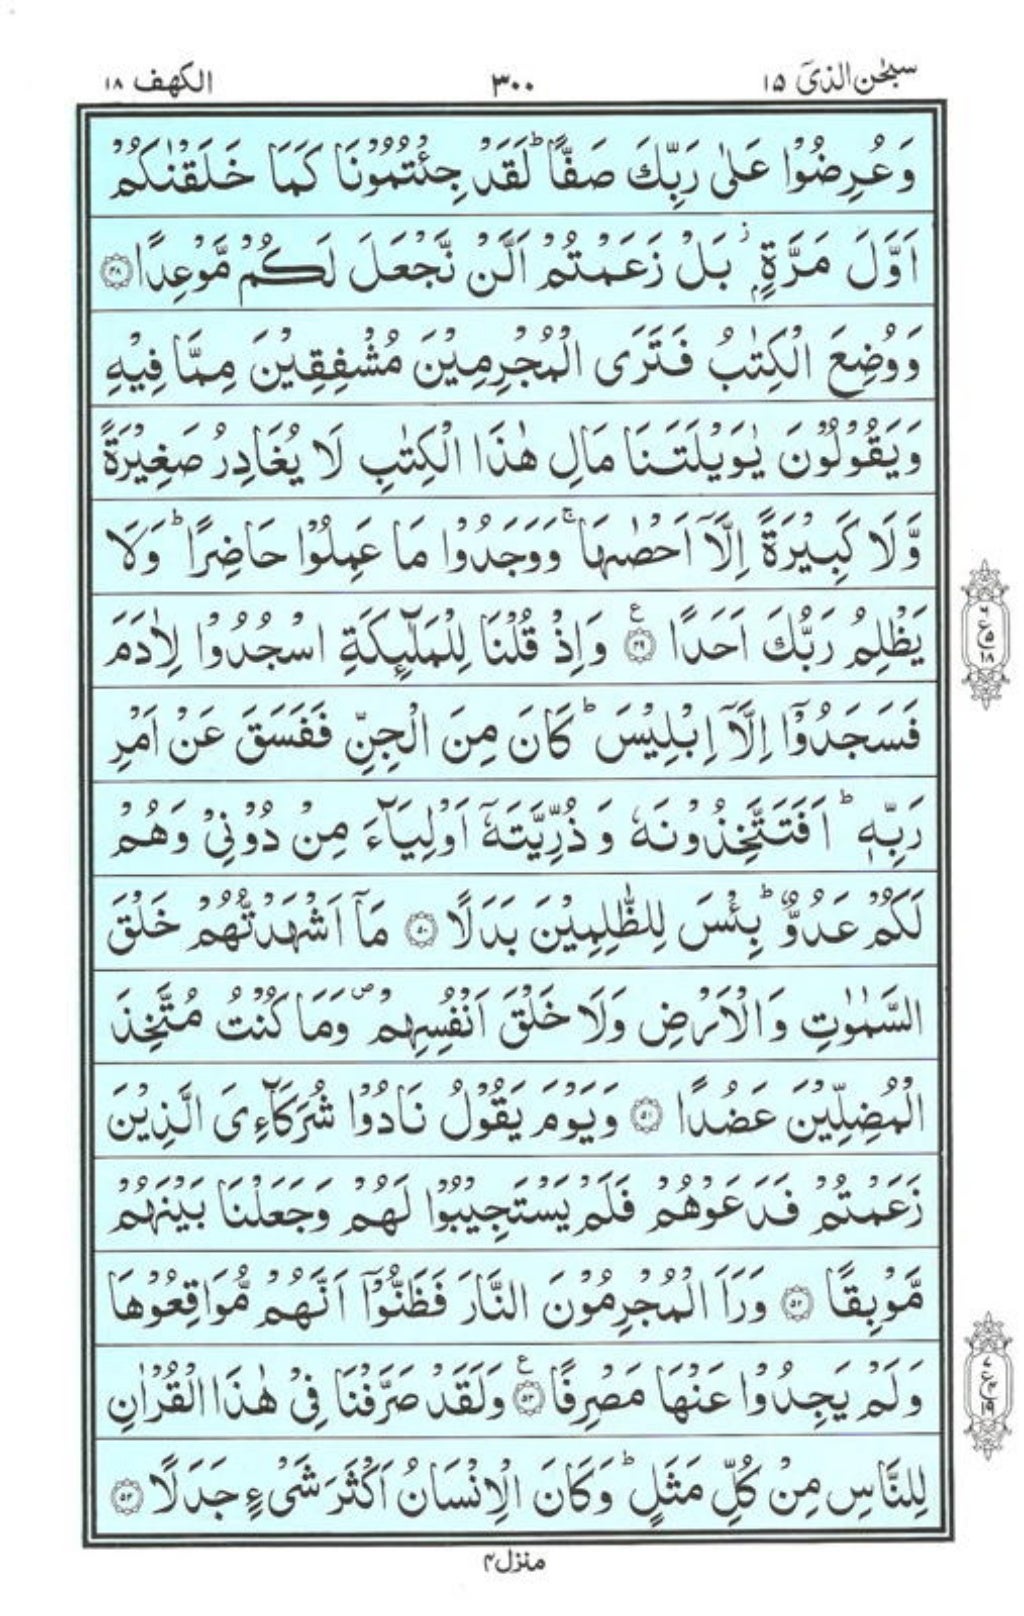 سبحٰن الذیٓ ۱۵
۳۰۰
الکھف ۱۸
وَعُرِضُوْا عَلٰى رَبِّكَ صَفًّا ؕ لَقَدْ جِئْتُمُوْنَا كَمَا خَلَقْنٰكُمْ
اَوَّلَ مَرَّةٍۭ ز بَلْ زَعَمْتُمْ اَلَّنْ نَّجْعَلَ لَكُمْ مَّوْعِدًا ۴۸
وَوُضِعَ الْكِتٰبُ فَتَرَى الْمُجْرِمِيْنَ مُشْفِقِيْنَ مِمَّا فِيْهِ
وَيَقُوْلُوْنَ يٰوَيْلَتَنَا مَالِ هٰذَا الْكِتٰبِ لَا يُغَادِرُ صَغِيْرَةً
وَّلَا كَبِيْرَةً اِلَّاۤ اَحْصٰىهَا ۚ وَوَجَدُوْا مَا عَمِلُوْا حَاضِرًا ؕ وَلَا
يَظْلِمُ رَبُّكَ اَحَدًا ۴۹ ع وَاِذْ قُلْنَا لِلْمَلٰٓئِكَةِ اسْجُدُوْا لِاٰدَمَ
فَسَجَدُوْۤا اِلَّاۤ اِبْلِيْسَ ؕ كَانَ مِنَ الْجِنِّ فَفَسَقَ عَنْ اَمْرِ
رَبِّهٖ ؕ اَفَتَتَّخِذُوْنَهٗ وَ ذُرِّيَّتَهٗۤ اَوْلِيَآءَ مِنْ دُوْنِيْ وَهُمْ
لَكُمْ عَدُوٌّ ؕ بِئْسَ لِلظّٰلِمِيْنَ بَدَلًا ۵۰ مَاۤ اَشْهَدْتُّهُمْ خَلْقَ
السَّمٰوٰتِ وَالْاَرْضِ وَلَا خَلْقَ اَنْفُسِهِمْ ص وَمَا كُنْتُ مُتَّخِذَ
الْمُضِلِّيْنَ عَضُدًا ۵۱ وَيَوْمَ يَقُوْلُ نَادُوْا شُرَكَآءِىَ الَّذِيْنَ
زَعَمْتُمْ فَدَعَوْهُمْ فَلَمْ يَسْتَجِيْبُوْا لَهُمْ وَجَعَلْنَا بَيْنَهُمْ
مَّوْبِقًا ۵۲ وَرَاَ الْمُجْرِمُوْنَ النَّارَ فَظَنُّوْۤا اَنَّهُمْ مُّوَاقِعُوْهَا
وَلَمْ يَجِدُوْا عَنْهَا مَصْرِفًا ۵۳ ع وَلَقَدْ صَرَّفْنَا فِيْ هٰذَا الْقُرْاٰنِ
لِلنَّاسِ مِنْ كُلِّ مَثَلٍ ؕ وَكَانَ الْاِنْسَانُ اَكْثَرَ شَيْءٍ جَدَلًا ۵۴
منزل۴
۶
ع۵
۱۸
۷
ع۴
۱۹